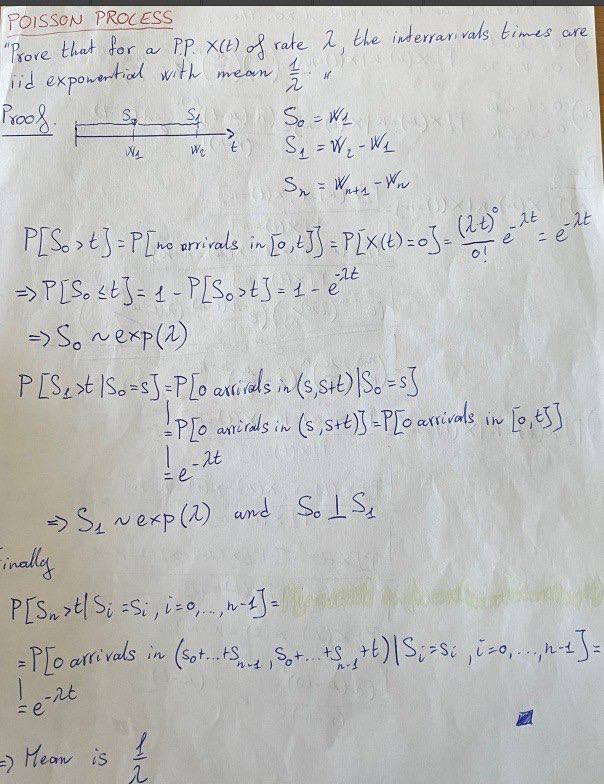 POISSON PROCESS
"Prove that for a P.P. X(t) of rate λ, the interrarivals times are
iid exponential with mean 1/λ. "
Proof.
S₀ S₁
W₁ W₂ t
S₀ = W₁
S₁ = W₂ - W₁
Sₙ = Wₙ₊₁ - Wₙ
P[S₀>t] = P[no arrivals in [0,t]] = P[X(t)=0] = (λt)⁰/0! e^-λt = e^-λt
=> P[S₀≤t] = 1 - P[S₀>t] = 1 - e^-λt
=> S₀ ~ exp(λ)
P[S₁>t|S₀=s] = P[0 arrivals in (s,s+t)|S₀=s]
= P[0 arrivals in (s,s+t)] = P[0 arrivals in [0,t]]
= e^-λt
=> S₁ ~ exp(λ) and S₀ ⊥ S₁
Finally
P[Sₙ>t|Sᵢ=sᵢ, i=0,...,n-1] =
= P[0 arrivals in (s₀+...+sₙ₋₁, s₀+...+sₙ₋₁+t)|Sᵢ=sᵢ, i=0,...,n-1] =
= e^-λt
=> Mean is 1/λ